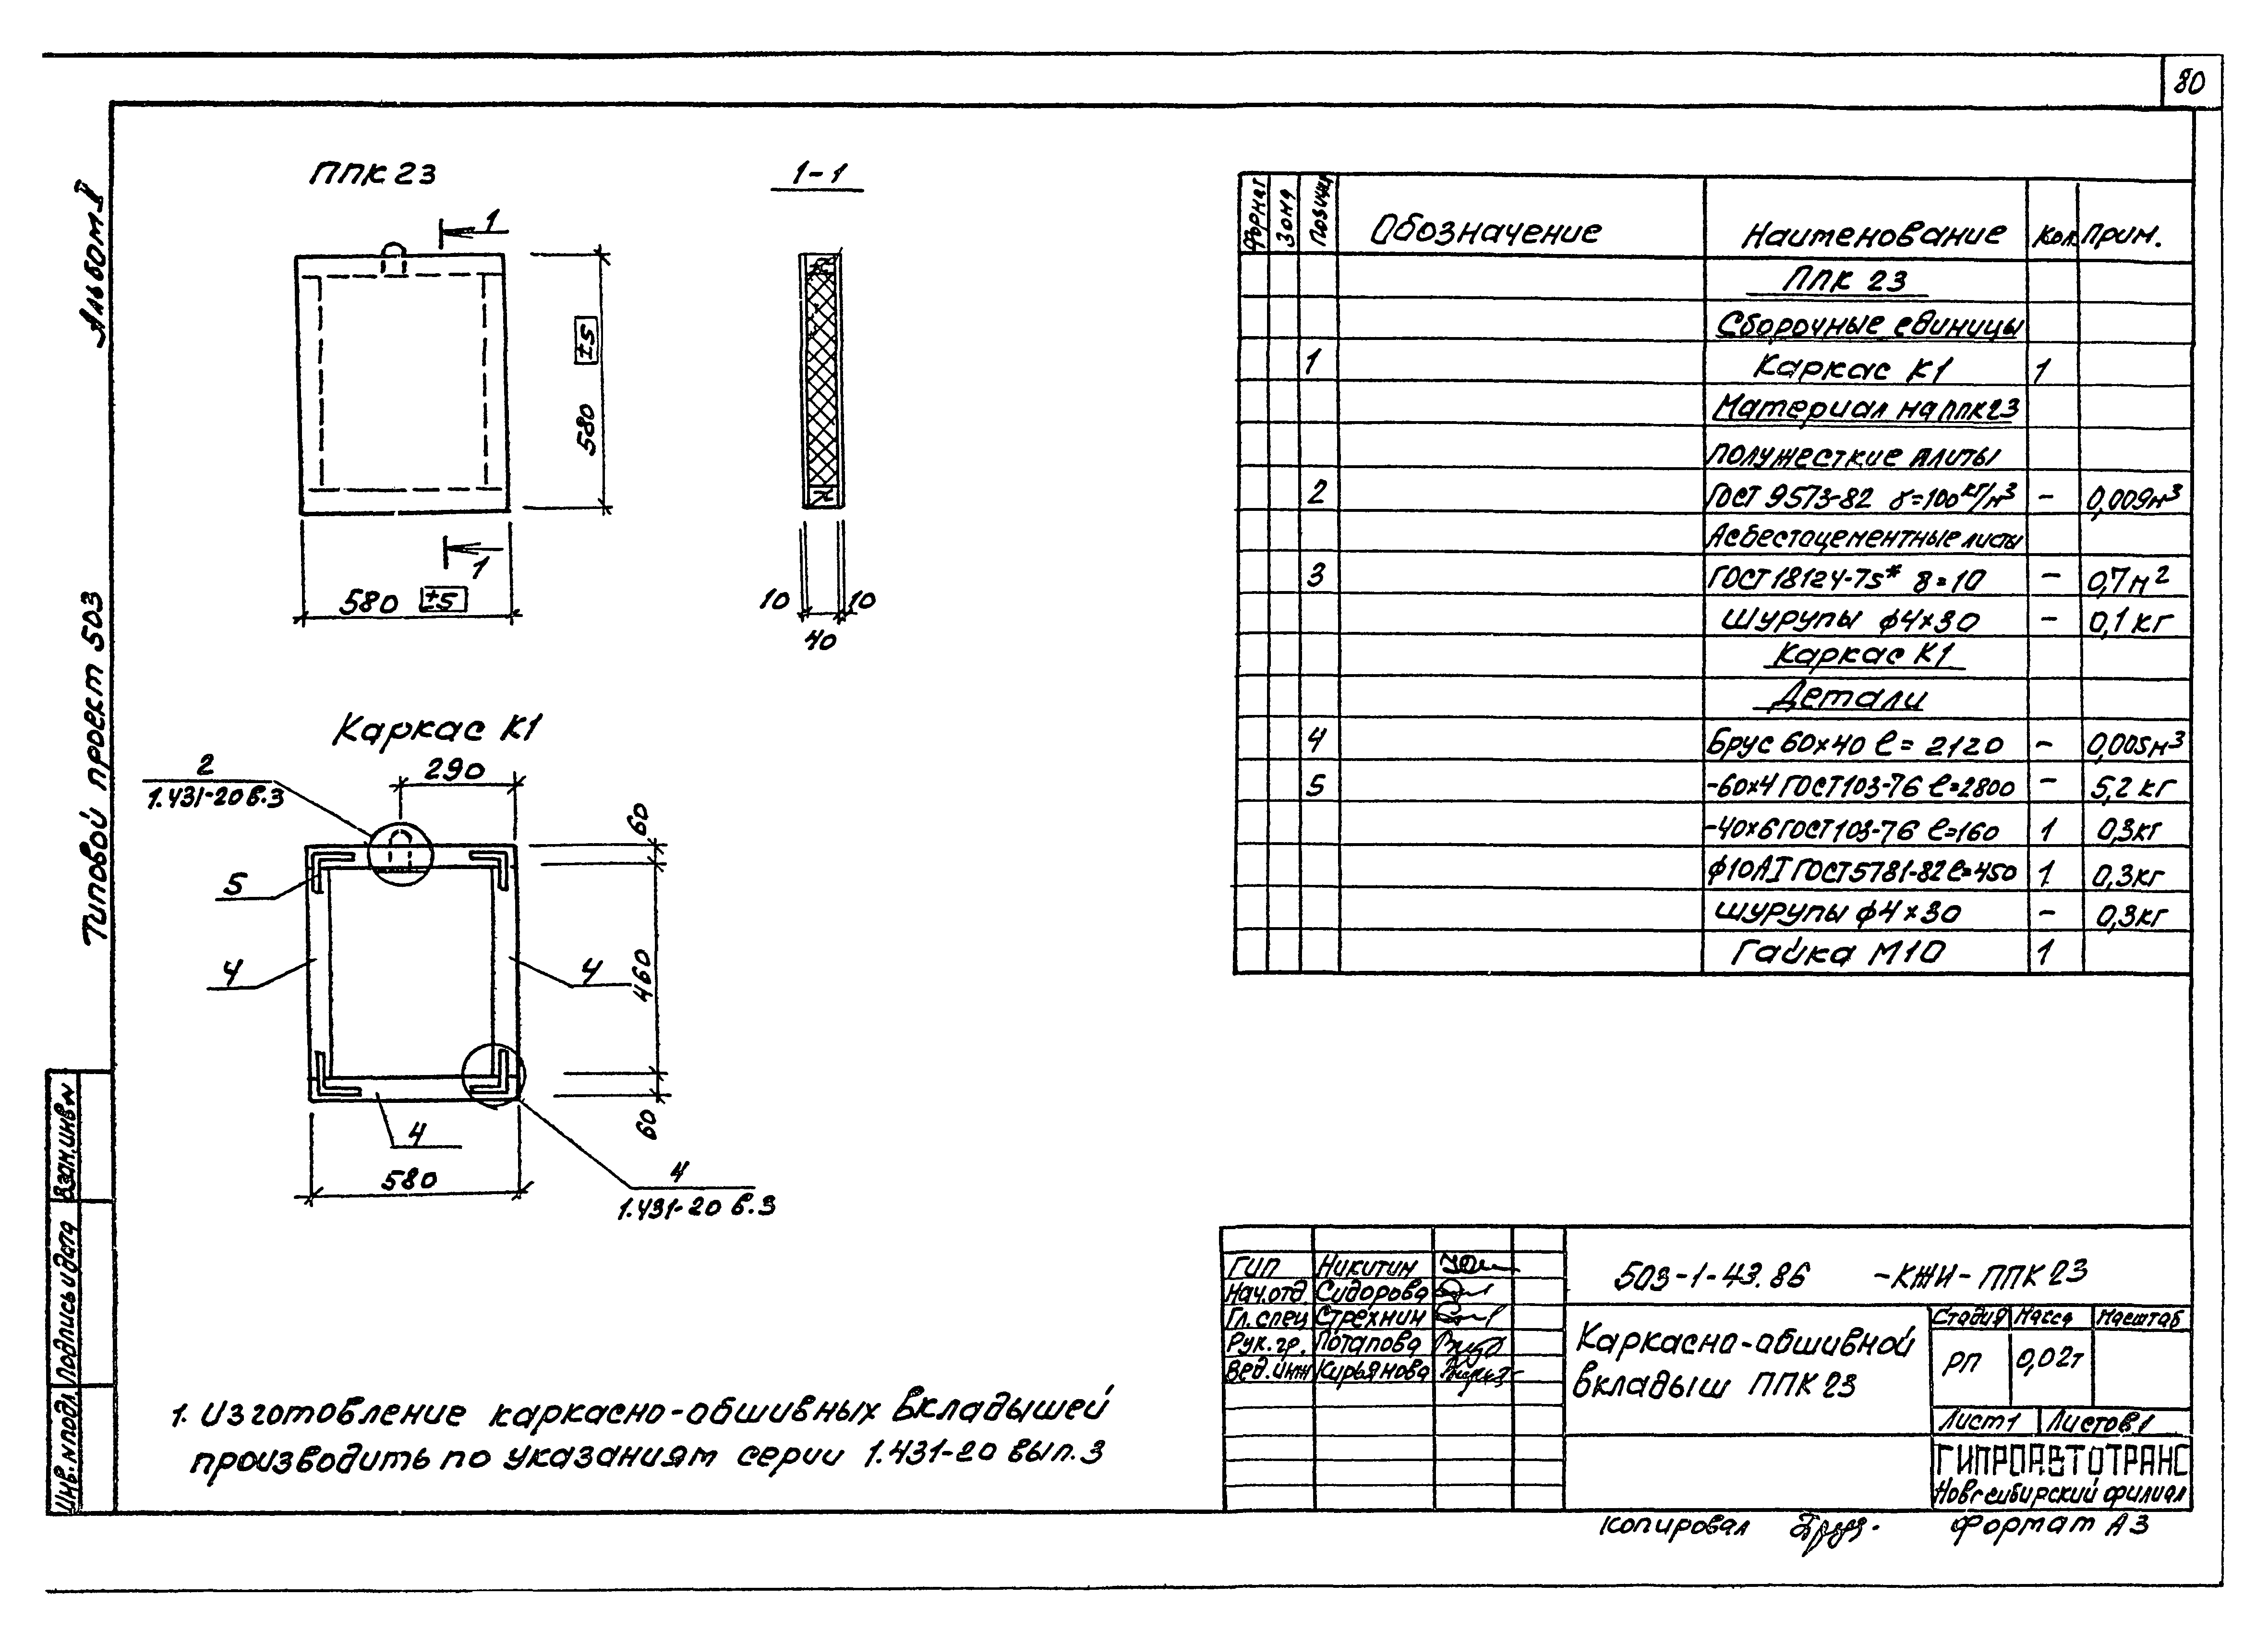 80
Альбом I
Типовой проект 503
ППК 23
1-1
1
1
580 ±5
580 ±5
10 10
40
Каркас К1
2
1.431-20 в.3
290
60
460
60
5
4
4
4
580
4
1.431-20 в.3
Формат Зона Позиция Обозначение Наименование Кол. Прим.
ППК 23
Сборочные единицы
1 Каркас К1 1
Материал на ППК23
Полужесткие плиты
2 ГОСТ 9573-82 γ=100кг/м³ - 0,009м³
Асбестоцементные листы
3 ГОСТ 18124-75* δ=10 - 0,7м²
Шурупы ф4×30 - 0,1 кг
Каркас К1
Детали
4 Брус 60×40 ℓ= 2120 - 0,005м³
5 -60×4 ГОСТ103-76 ℓ=2800 - 5,2 кг
-40×6 ГОСТ103-76 ℓ=160 1 0,3кг
ф10АI ГОСТ5781-82 ℓ=450 1 0,3кг
Шурупы ф4×30 - 0,3кг
Гайка М10 1
1. Изготовление каркасно-обшивных вкладышей
производить по указаниям серии 1.431-20 вып.3
Взам.инв.N
Подпись и дата
Инв.N подл.
ГИП Никитин
Нач.отд. Сидорова
Гл.спец Стрехнин
Рук.гр. Потапова
Вед.инж Кирьянова
503-1-43.86 -КЖИ-ППК23
Каркасно-обшивной
вкладыш ППК23
Стадия Масса Масштаб
РП 0,02т
Лист 1 Листов 1
ГИПРОАВТОТРАНС
Новосибирский филиал
Копировал Формат А3